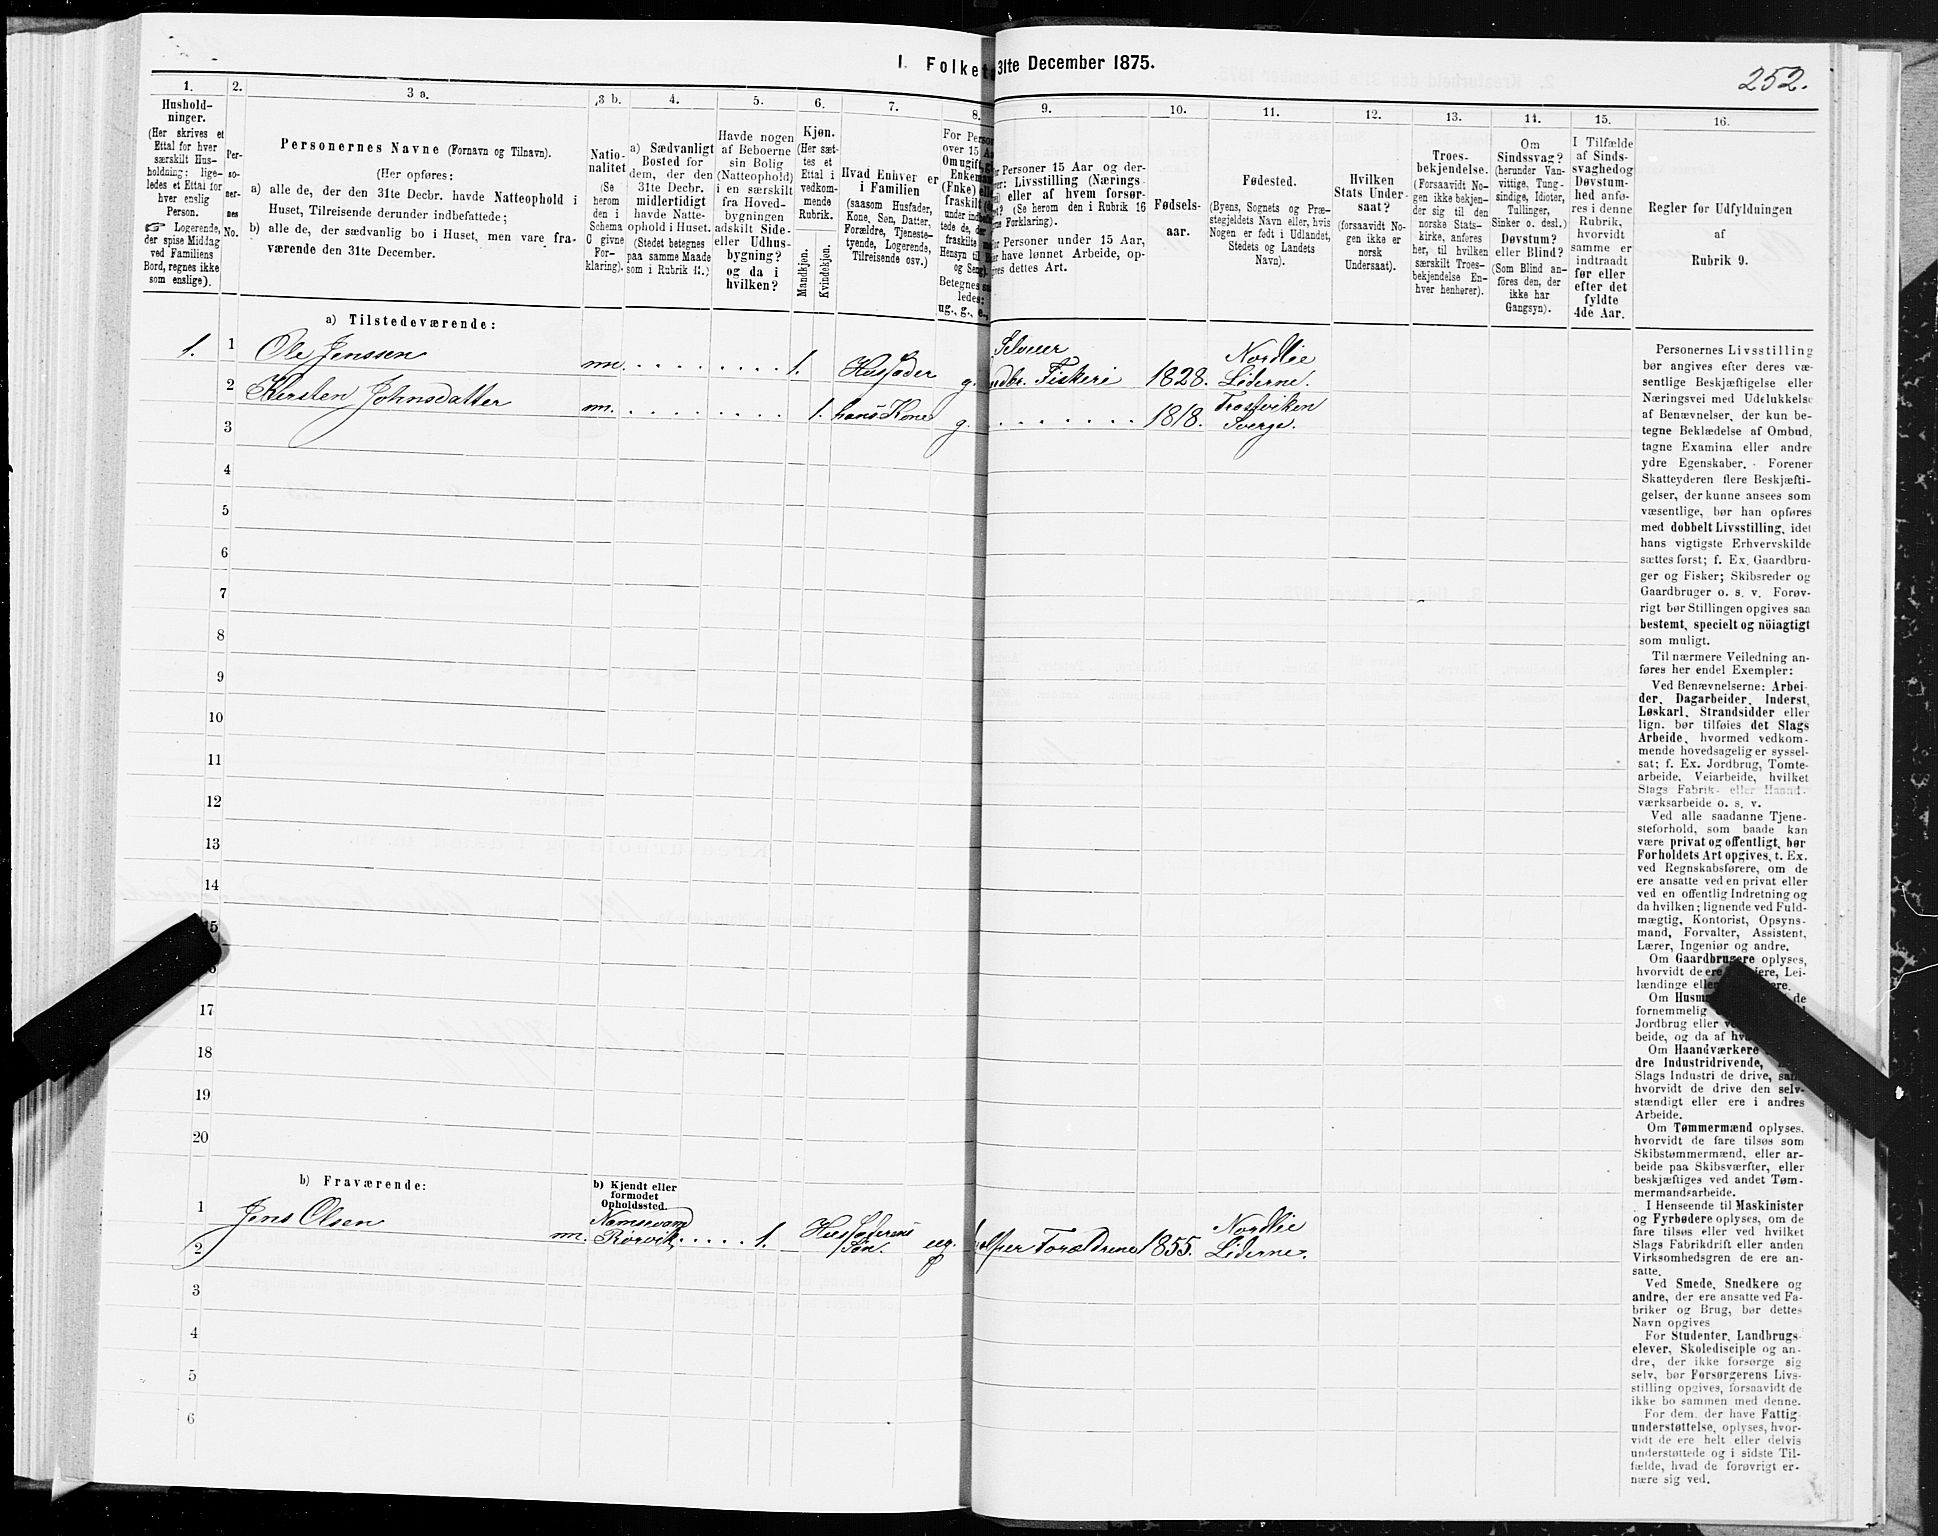 1. Folket 31te December 1875.
252.
1.
Hushold-
ninger.
(Her skrives et
Ettal for hver
særskilt Hus-
holdning; lige-
ledes et Ettal for
hver enslig
Person.
☞ Logerende,
der spise Middag
ved Familiens
Bord, regnes ikke
som enslige).
2.
Per-
so-
ner-
nes
No.
3 a.
Personernes Navne (Fornavn og Tilnavn).
(Her opføres:
a) alle de, der den 31te Decbr. havde Natteophold i
Huset, Tilreisende derunder indbefattede;
b) alle de, der sædvanlig bo i Huset, men vare fra-
værende den 31te December.
3 b.
Natio-
nalitet
(Se
herom
den i
Schema
C givne
For-
klaring).
4.
a) Sædvanligt
Bosted for
dem, der den
31te Decbr.
midlertidigt
havde Natte-
ophold i Huset.
(Stedet betegnes
paa samme Maade
som i Rubrik 11.)
5.
Havde nogen
af Beboerne
sin Bolig
(Natteophold)
i en særskilt
fra Hoved-
bygningen
adskilt Side-
eller Udhus-
bygning?
og da i
hvilken?
6.
Kjøn.
(Her sæt-
tes et
Ettal i
vedkom-
mende
Rubrik.
Mandkjøn.
Kvindekjøn.
7.
Hvad Enhver er
i Familien
(saasom Husfader,
Kone, Søn, Datter,
Forældre, Tjeneste-
tyende, Logerende,
Tilreisende osv.)
8.
For Perso
over 15 Aa
Om ugift, gi
Enkema
(Enke) elle
fraskilt (
under indbe
tede de, de
fraskilte m
Hensyn til B
og Seng).
Betegnes saa
ledes:
ug., g., e.,
9.
or Personer 15 Aar og der-
ver: Livsstilling (Nærings-
ei) eller af hvem forsør-
et? (Se herom den i Rubrik 16
ne Forklaring).
or Personer under 15 Aar,
er have lønnet Arbeide, op-
øres dettes Art.
10.
Fødsels-
aar.
11.
Fødested.
(Byens, Sognets og Præ-
stegjeldets Navn eller, hvis
Nogen er født i Udlandet,
Stedets og Landets
Navn).
12.
Hvilken
Stats Under-
saat?
(forsaavidt No-
gen ikke er
norsk
Undersaat).
13.
Troes-
bekjendelse.
(Forsaavidt No-
gen ikke bekjen-
der sig til den
norske Stats-
kirke, anføres
her, til hvilken
særskilt Troes-
bekjendelse En-
hver henhører).
14.
Om
Sindssvag?
(herunder Van-
vittige, Tung-
sindige, Idioter,
Tullinger,
Sinker o. desl.)
Døvstum?
eller Blind?
(Som Blind an-
føres den, der
ikke har
Gangsyn).
15.
I Tilfælde
af Sinds-
svaghed og
Døvstum-
hed anfø-
res i denne
Rubrik,
hvorvidt
samme er
indtraadt
før eller
efter det
fyldte
4de Aar.
16.
Regler for Udfyldningen
af
Rubrik 9.
a) Tilstedeværende:
1. 1 Ole Jenssen nn. 1. Husfader g. Selveier
Fiskeri 1828. Nordlie
Lierne.
2 Kersten Johnsdatter nn. 1. hans Kone g. 1818. Frostviken
Sverge.
3
4
5
6
7
8
9
10
11
12
13
14
15
17
18
19
20
b) Fraværende:
b) Kjendt eller
formodet
Opholdssted.
1 Jens Olsen nn. Namsevand
Rørvik 1. Husfaderens
Søn. ug. Forældrene 1855. Nordlie
Lierne.
2
3
4
5
6
Personernes Livsstilling
bør angives efter deres væ-
sentlige Beskjæftigelse eller
Næringsvei med Udelukkelse
af Benævnelser, der kun be-
tegne Beklædelse af Ombud,
tagne Examina eller andre
ydre Egenskaber. Forener
Skatteyderen flere Beskjæfti-
gelser, der kunne ansees som
væsentlige, bør han opføres
med dobbelt Livsstilling, idet
hans vigtigste Erhvervskilde
sættes først; f. Ex. Gaardbru-
ger og Fisker; Skibsreder og
Gaardbruger o. s. v. Forøv-
rigt bør Stillingen opgives saa
bestemt, specielt og nöiagtigt
som muligt.
Til nærmere Veiledning an-
føres her endel Exempler:
Ved Benævnelserne: Arbei-
der, Dagarbeider, Inderst,
Løskarl, Strandsidder eller
lign. bør tilføies det Slags
Arbeide, hvormed vedkom-
mende hovedsagelig er syssel-
sat; f. Ex. Jordbrug, Tomte-
arbeide, Veiarbeide, hvilket
Slags Fabrik- eller Haand-
værksarbeide o. s. v.
Ved alle saadanne Tjene-
steforhold, som baade kan
være privat og offentligt, bør
Forholdets Art opgives, t. Ex.
ved Regnskabsførere, om de
ere ansatte ved en privat eller
ved en offentlig Indretning og
da hvilken; lignende ved Fuld-
mægtig, Kontorist, Opsyns-
mand, Forvalter, Assistent,
Lærer, Ingeniør og andre.
Om Gaardbrugere oplyses,
hvorvidt de ere Lei-
lændinge eller
Om Husm de
fornemmelig
Jordbrug eller
beide, og da af
Om Haandværkere
dre Industridrivende,
Slags Industri de drive, samt
hvorvidt de drive den selv-
stændigt eller ere i andres
Arbeide.
Om Tømmermænd oplyses,
hvorvidt de fare tilsøs som
Skibstømmermænd, eller ar-
beide paa Skibsværfter, eller
beskjæftiges ved andet Tøm-
mermandsarbeide.
I Henseende til Maskinister
og Fyrbødere oplyses, om de
fare tilsøs eller ved hvilket
Slags Fabrikdrift eller anden
Virksomhedsgren de ere an-
satte.
Ved Smede, Snedkere og
andre, der ere ansatte ved Fa-
briker og Brug, bør dettes
Navn opgives
For Studenter, Landbrugs-
elever, Skoledisciple og an-
dre, der ikke forsørge sig
selv, bør Forsørgerens Livs-
stilling opgives, forsaavidt de
ikke bo sammen med denne.
For dem, der have Fattig-
understøttelse, oplyses, hvor-
vidt de ere helt eller delvis
understøttede og i sidste Til-
fælde, hvad de forøvrigt er-
nære sig ved.